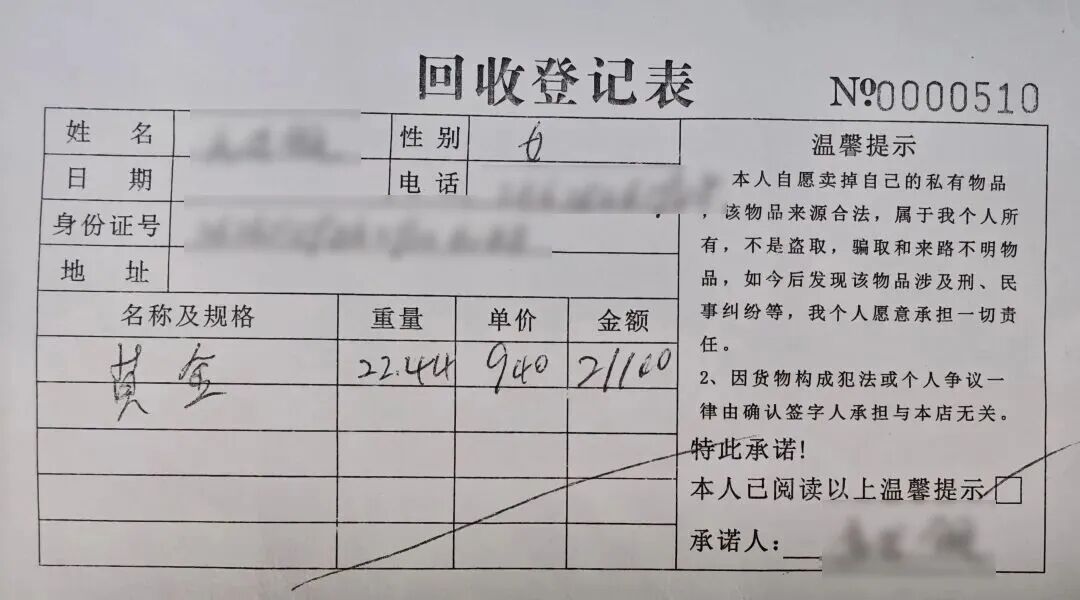 回收登记表
№0000510
姓 名
性别
女
日 期
电话
身份证号
地 址
名称及规格 重量 单价 金额
黄金 22.44 940 21100
温馨提示
本人自愿卖掉自己的私有物品
,该物品来源合法，属于我个人所
有，不是盗取，骗取和来路不明物
品，如今后发现该物品涉及刑、民
事纠纷等，我个人愿意承担一切责
任。
2、因货物构成犯法或个人争议一
律由确认签字人承担与本店无关。
特此承诺!
本人已阅读以上温馨提示
承诺人: